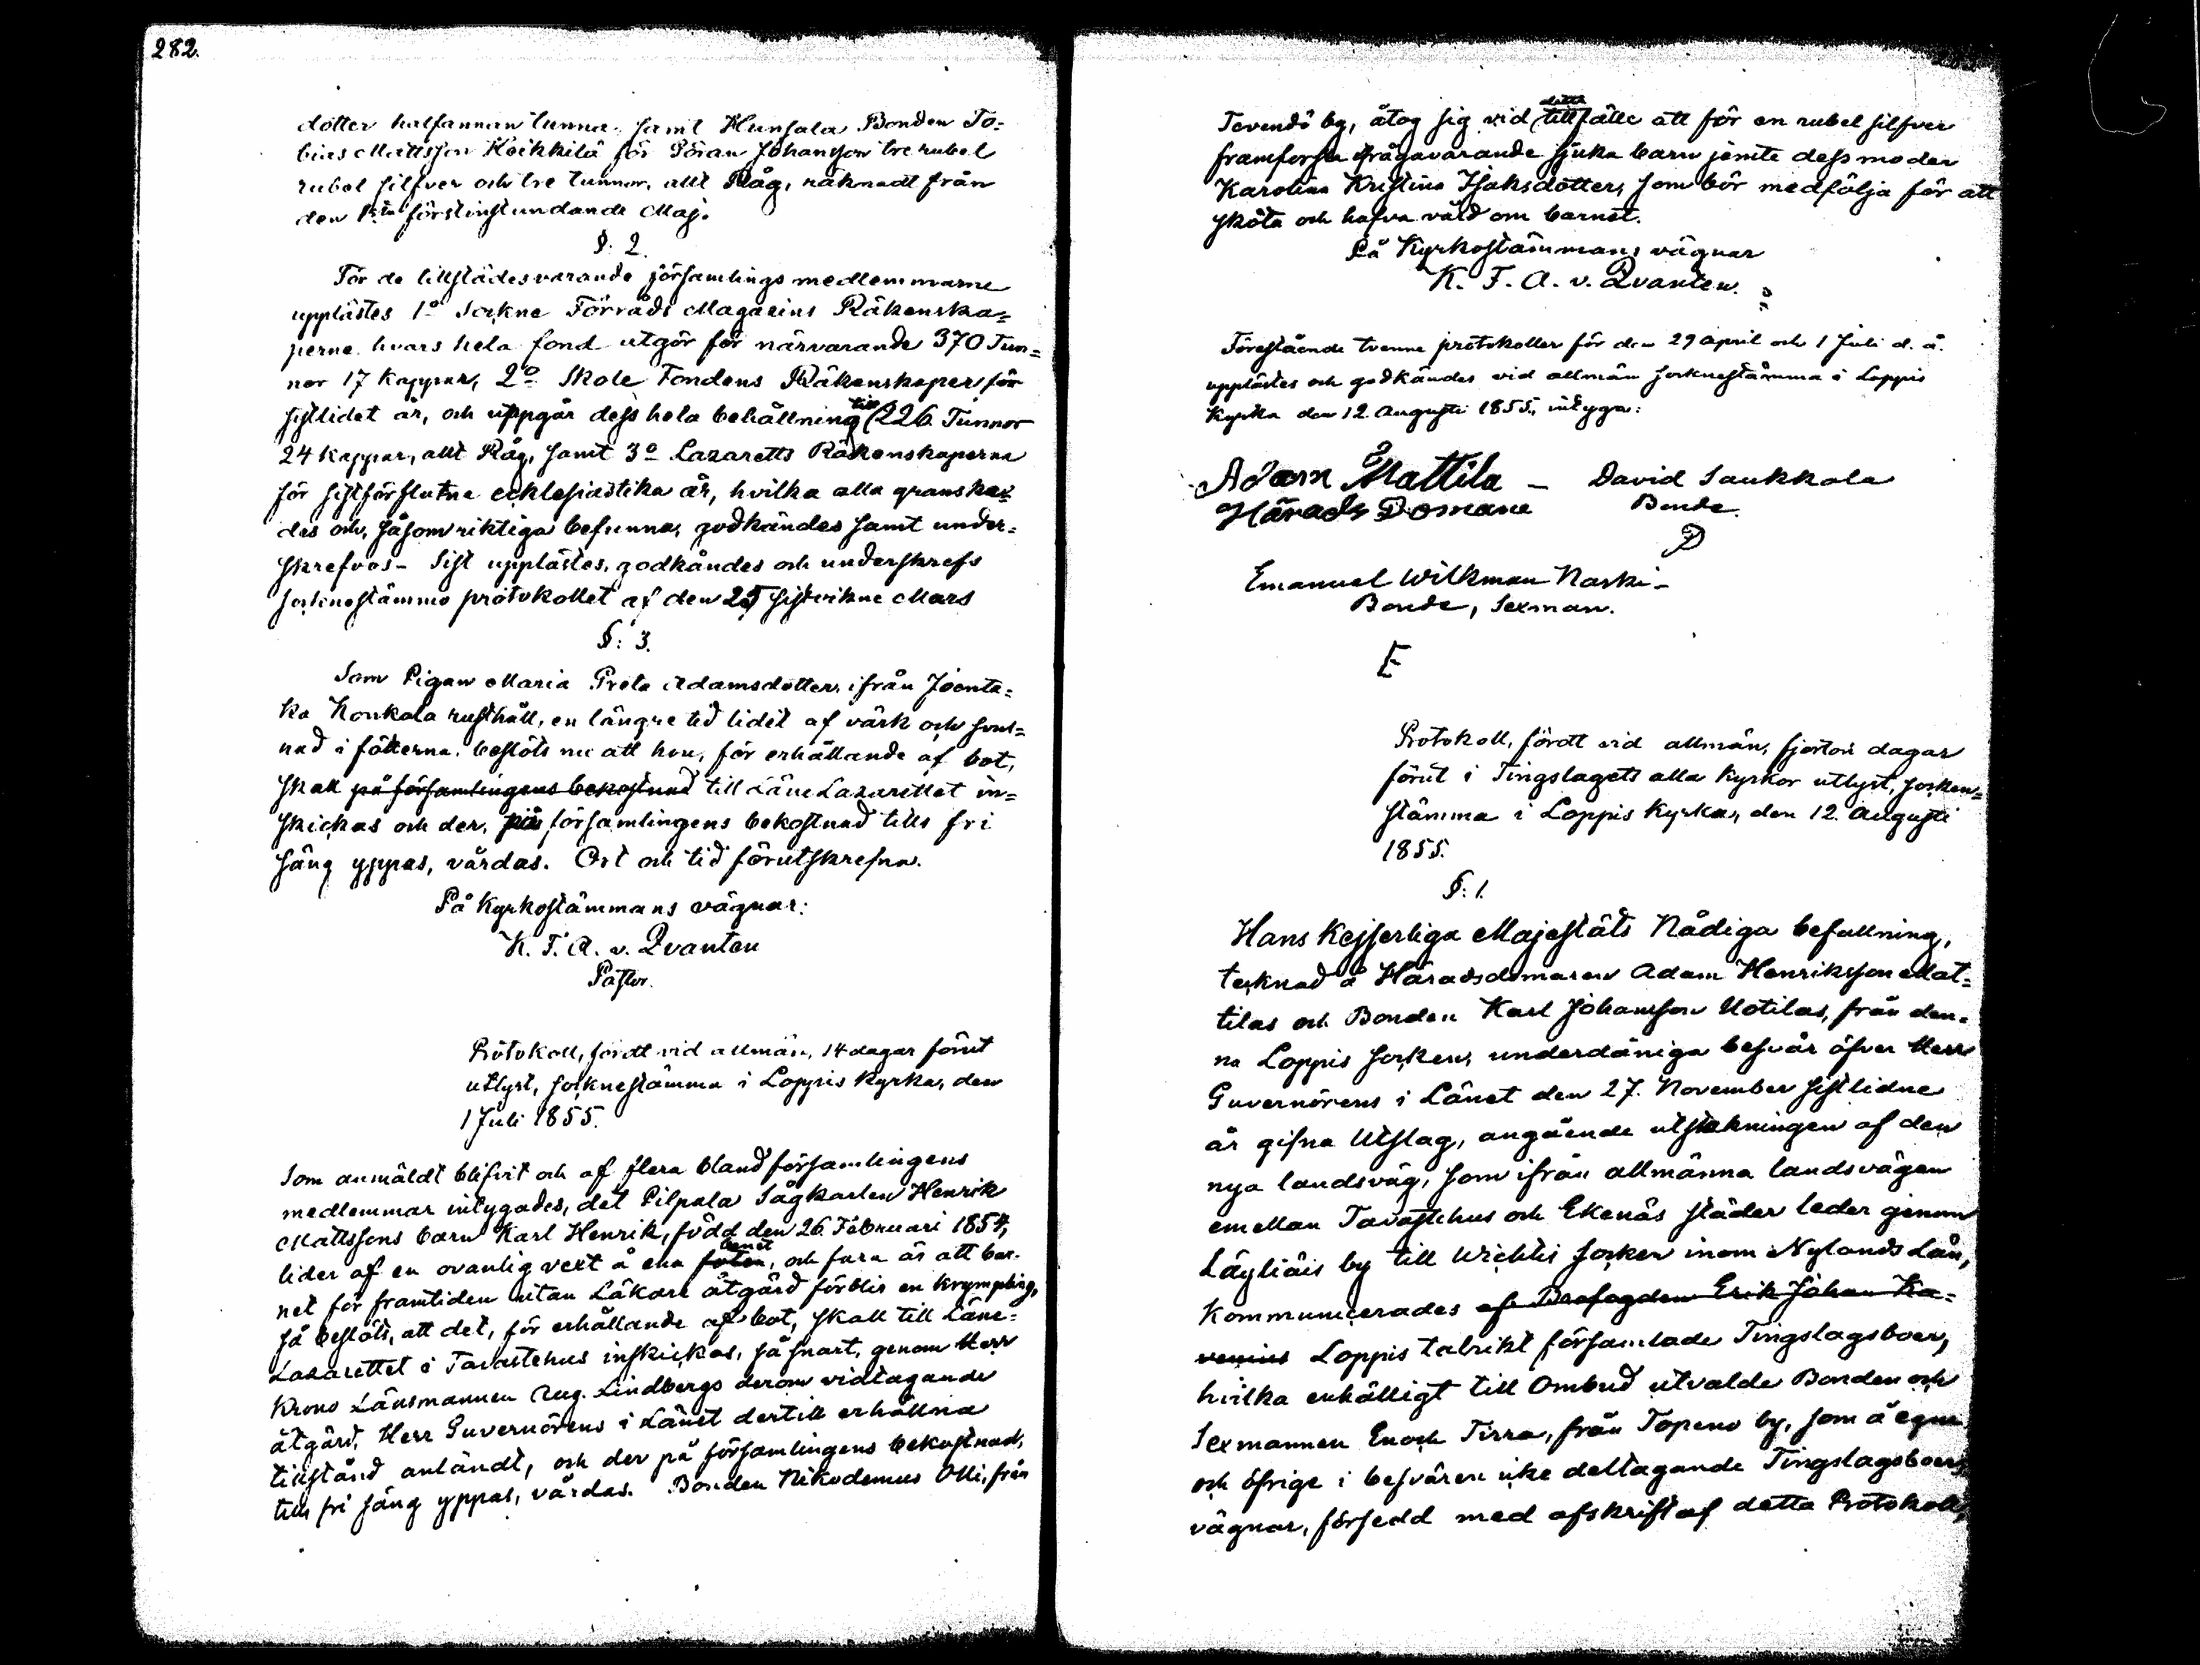 282.
dotter halfannan tunna, samt Hunsala Bonden To-
bias Mattsson Heikkilä för Göran Johansson tre rubel
rubel silfver och tre tunnor, allt Råg, räknadt från
den 1sta förstinstundande Maj.
§. 2.
För de tillstädesvarande församlings medlemmarne
upplästes 1o Sockne Förråds Magasins Räkenska-
perne hvars hela fond utgör för närvarande 370 Tun-
nor 17 Kappar, 2o Skole Fondens Räkenskaper för
sistlidet år, och uppgår dess hela behållning till 226 Tunnor
24 kappar, allt Råg, samt 3o Lazaretts Räkenskaperna
för sistförflutna ecklesiastika år, hvilka alla granska-
des och, såsom riktiga befunna, godkändes samt under-
skrefvos - Sist upplästes, godkändes och underskrefs
sockenstämmo protokollet af den 25 sistvikne Mars
§: 3.
Som Pigan Maria Greta Adamsdotter, ifrån Joenta-
ka Konkala rusthåll, en längre tid lidit af värk och svul-
nad i fötterna, beslöts nu att hon, för erhållande af bot,
skall på församlingens bekostnad till Läne Lazarettet in-
skickas och der, på församlingens bekostnad tills fri
säng yppas, vårdas. Ort och tid förutskrefna.
På Kyrkostämmans vägnar:
K. F. A. v. Qvanten
Pastor.
Protokoll, fördt vid allmän, 14 dagar förut
utlyst, socknestämma i Loppis Kyrka, den
1 Juli 1855.
Som anmäldt blifvit och af flera bland församlingens
medlemmar intygades, det Pilpala Sågkarlen Henrik
Mattssons barn Karl Henrik, född den 26 Februari 1854,
lider af en ovanlig vext å ena foten benet, och fara är att bar-
net för framtiden utan Läkare åtgärd förblir en krympling,
så beslöts, att det, för erhållande af bot, skall till Läne-
Lazarettet i Tavastehus inskickas, så snart, genom Herr
Krono Länsmannen Aug. Lindbergs derom vidtagande
åtgärd, Herr Guvernörens i Länet dertill erhållna
tillstånd anländt, och der på församlingens bekostnad,
tills fri säng yppas, vårdas. Bonden Nikodemus Olli, från
Tevendö by, åtog sig vid detta tillfälle att för en rubel silfver
framforsla ifrågavarande sjuka barn jemte dess moder
Karolina Kristina Isaksdotter, som bör medfölja för att
sköta och hafva vård om barnet.
På Kyrkostämmans vägnar
K. F. A. v. Qvanten.
Förestående tvenne protokoller för den 29 april och 1 Juli d. å.
upplästes och godkändes vid allmän socknestämma i Loppis
Kyrka den 12 Augusti 1855, intyga:
Adam Mattila - David Saukkola
Härads Domare Bonde.
Emanuel Wilkman Naski -
Bonde, Sexman.
E
Protokoll, fördt vid allmän, fjorton dagar
förut i Tingslagets alla Kyrkor utlyst, socken-
stämma i Loppis Kyrka, den 12 Augusti
1855.
§: 1.
Hans Kejserliga Majestäts Nådiga befallning,
tecknad å Häradsdomaren Adam Henriksson Mat-
tilas och Bonden Karl Johansson Uotilas, från den-
na Loppis Socken, underdåniga besvär öfver Herr
Guvernörens i Länet den 27. November sistlidne
år gifna Utslag, angående utstakningen af den
nya landsväg, som ifrån allmänna landsvägen
emellan Tavastehus och Ekenäs städer leder genom
Läyliäis by till Wichtis Socken inom Nylands Län,
kommunicerades af Brofogden Erik Johan Ka-
venius Loppis talrikt församlade Tingslagsboer,
hvilka enhälligt till Ombud utvalde Bonden och
Sexmannen Enoch Tirra, från Topeno by, som å egna
och öfrige i besvären icke deltagande Tingslagsboers
vägnar, försedd med afskrift af detta Protokoll,